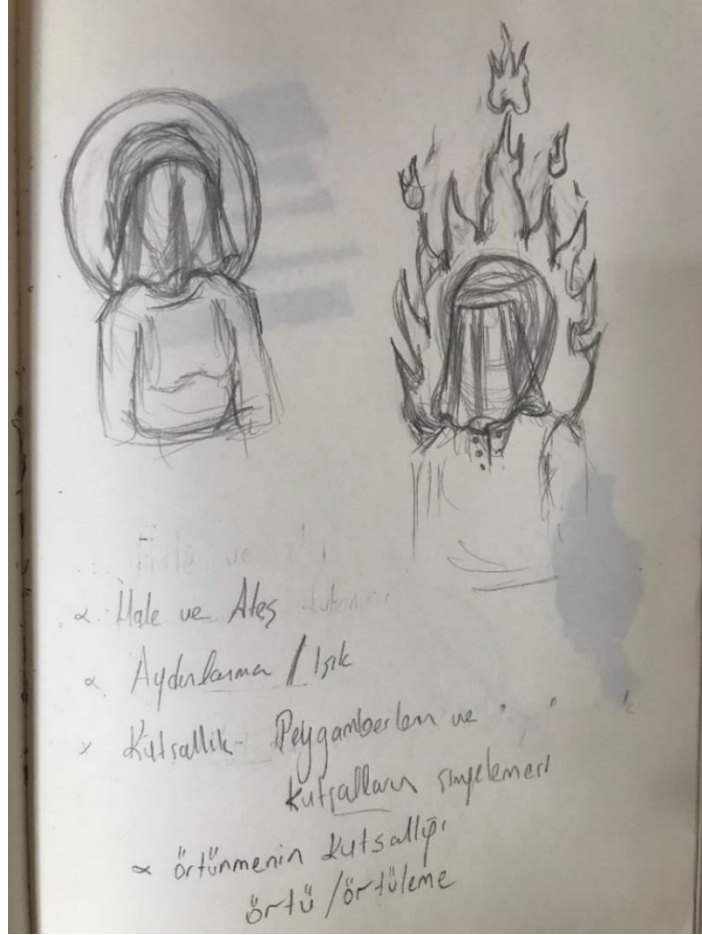 Hale ve Ateş
Aydınlanma / Işık
Kutsallık - Peygamberlerin ve " "
Kutsalların simgelemesi
örtünmenin kutsallığı
örtü / örtüleme